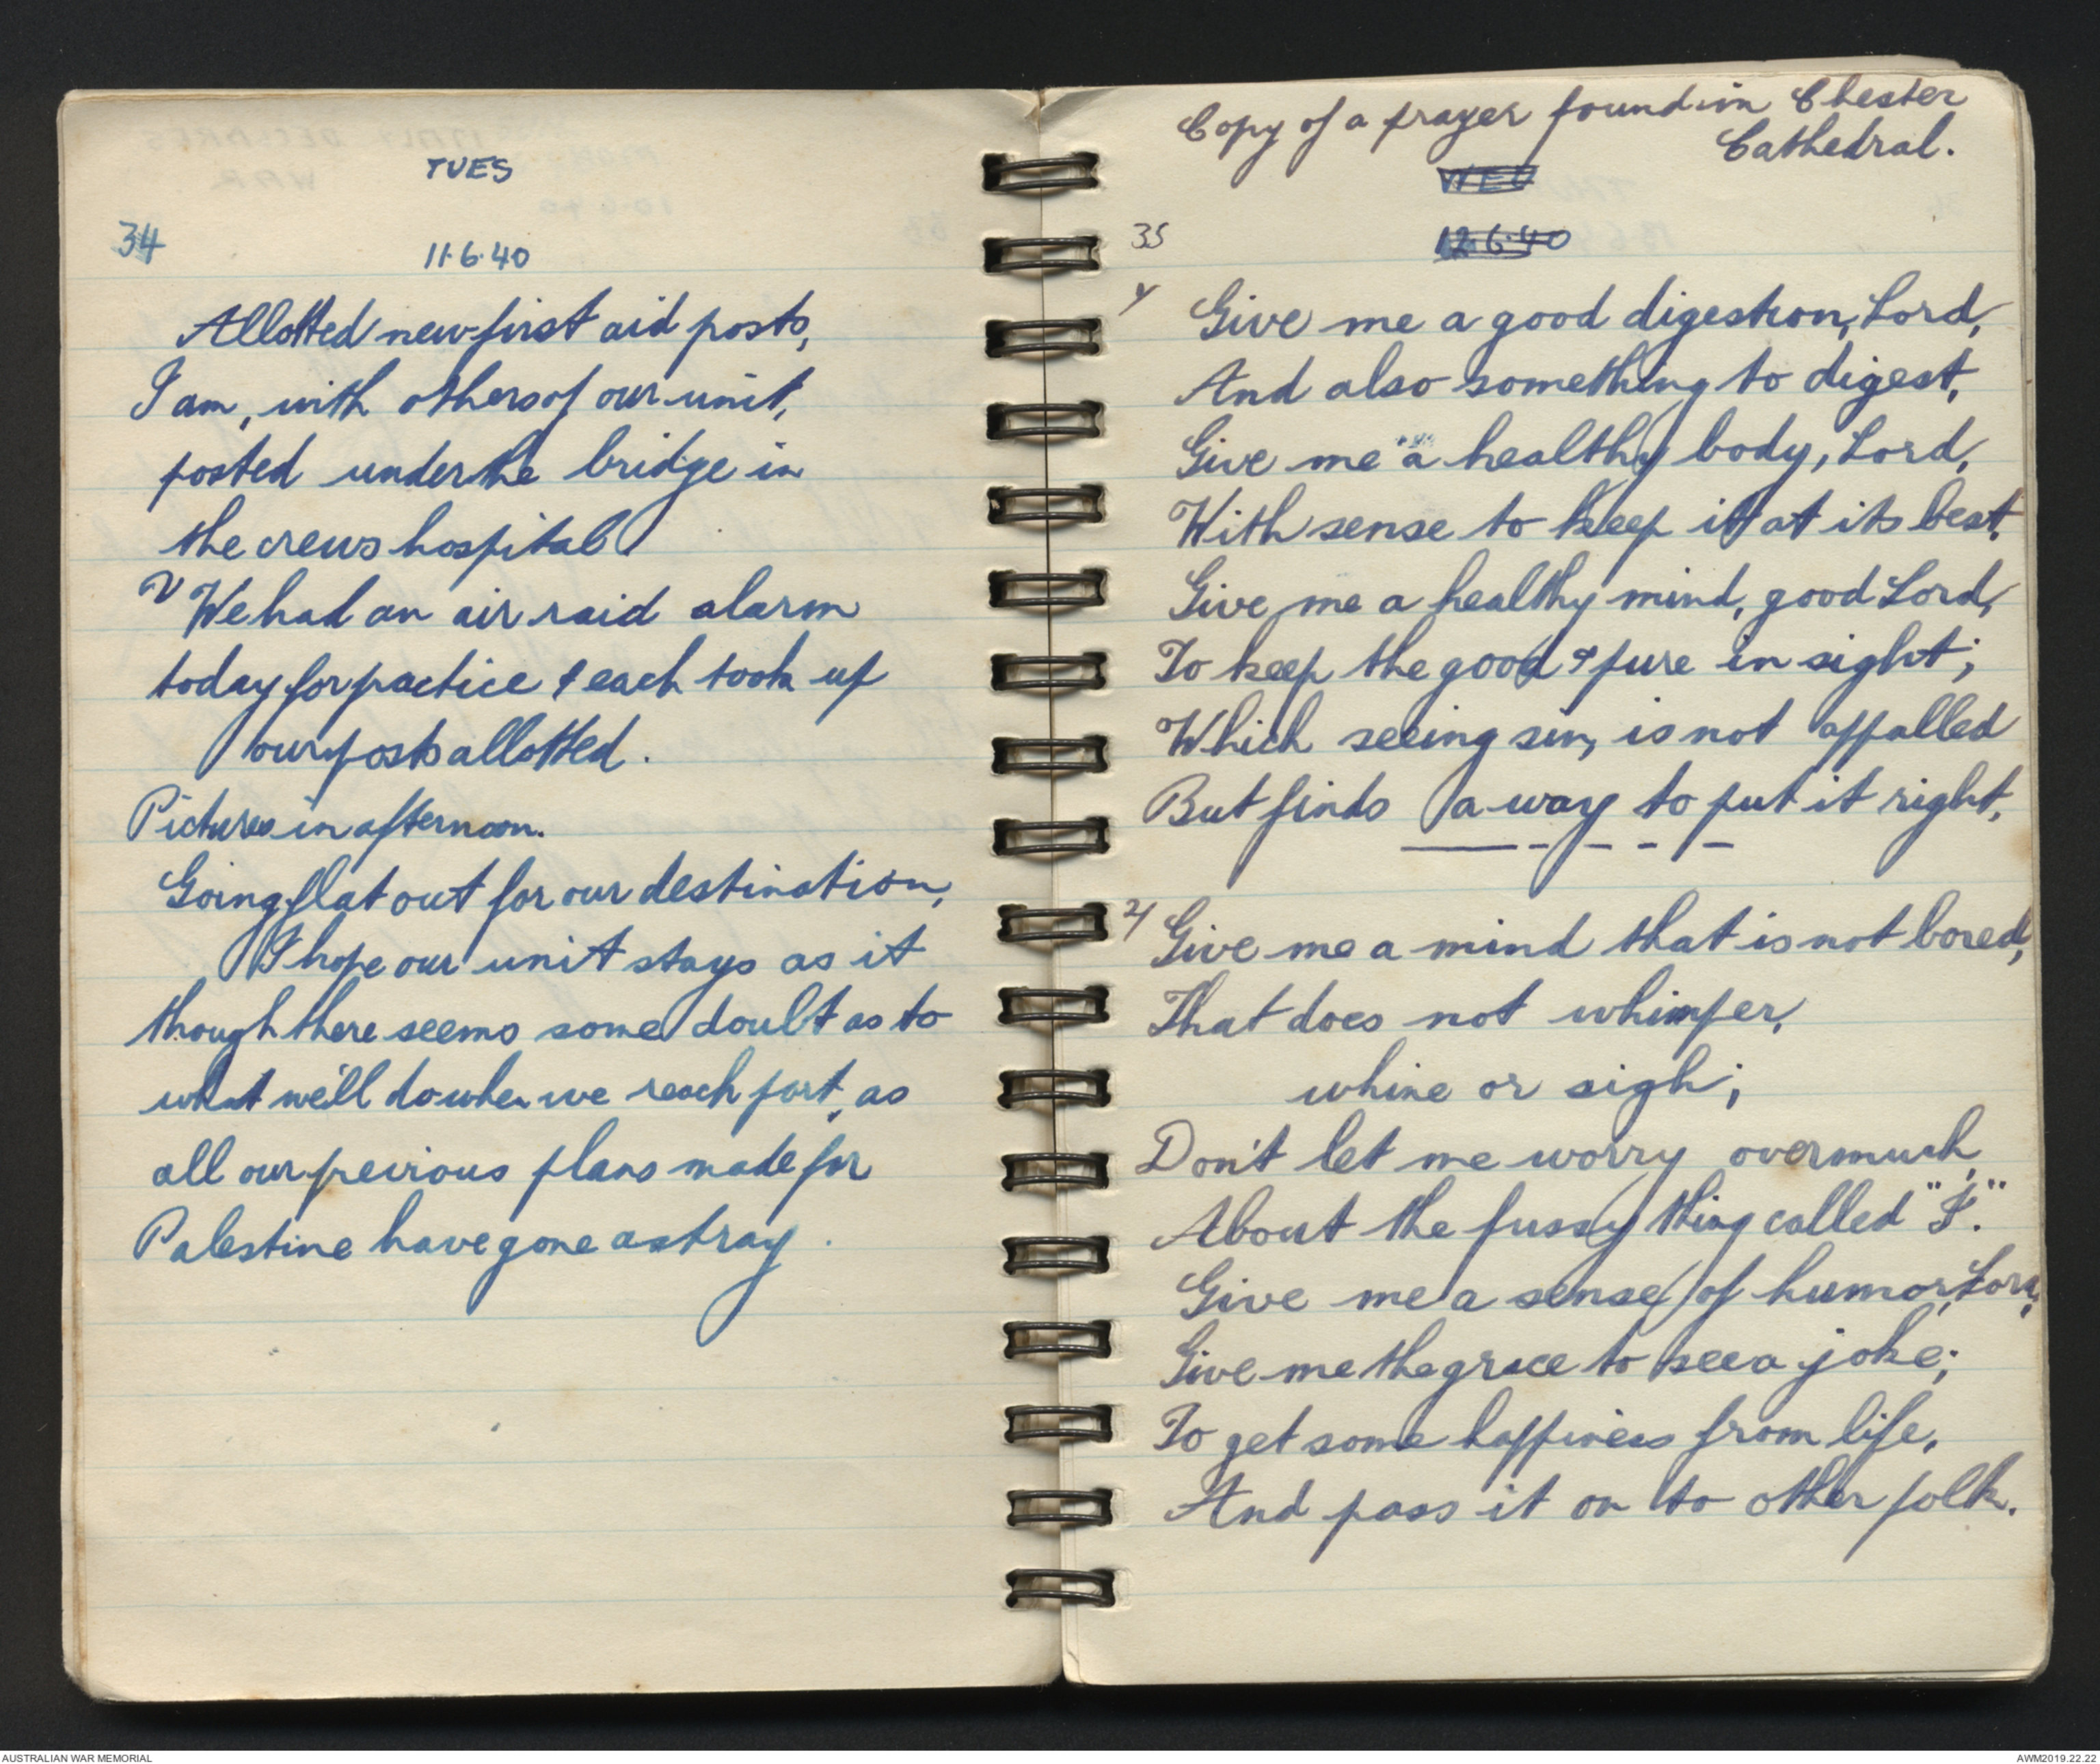 TUES
34
11.6.40
Allotted new first aid posts,
I am, with others of our unit,
posted under the bridge in
the crews hospital
We had an air raid alarm
today for pactice & each took up
our posts allotted.
Pictures in afternoon.
Going flat out for our destination,
I hope our unit stays as it
though there seems some doubt as to
what we'll do when we reach port, as
all our previous plans made for
Palestine have gone astray.
Copy of a prayer found in Chester
Cathedral.
WED
35
12.6.40
Give me a good digestion, Lord,
And also something to digest,
Give me a healthy body, Lord,
With sense to keep it at its best,
Give me a healthy mind, good Lord,
To keep the good & pure in sight;
Which seeing sin, is not appalled
But finds a way to put it right,
2/ Give me a mind that is not bored,
That does not whimper,
whine or sigh;
Don't let me worry overmuch,
About the fussy thing called "I".
Give me a sense of humor, Lord,
Give me the grace to see a joke;
To get some happiness from life,
And pass it on to other folk.
AUSTRALIAN WAR MEMORIAL
AWM2019.22.22